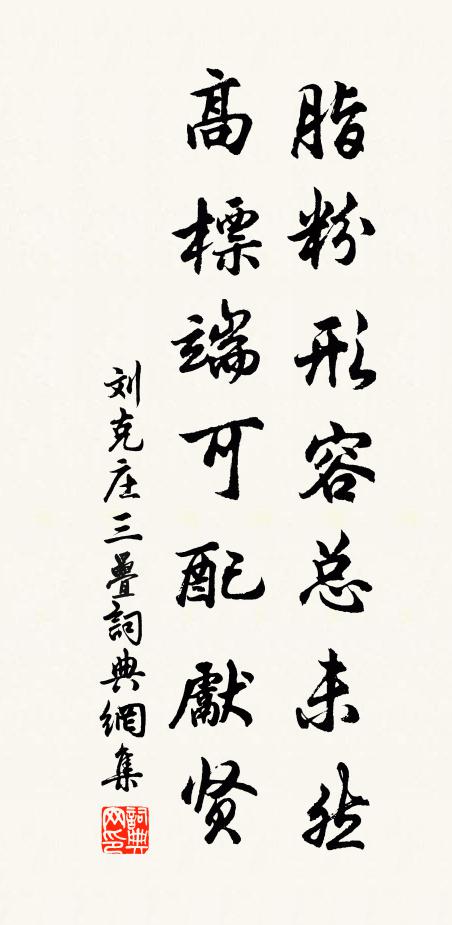 脂粉形容总未然
高標端可配獻贤
刘克庄三疊詞典網集
詞典
网印